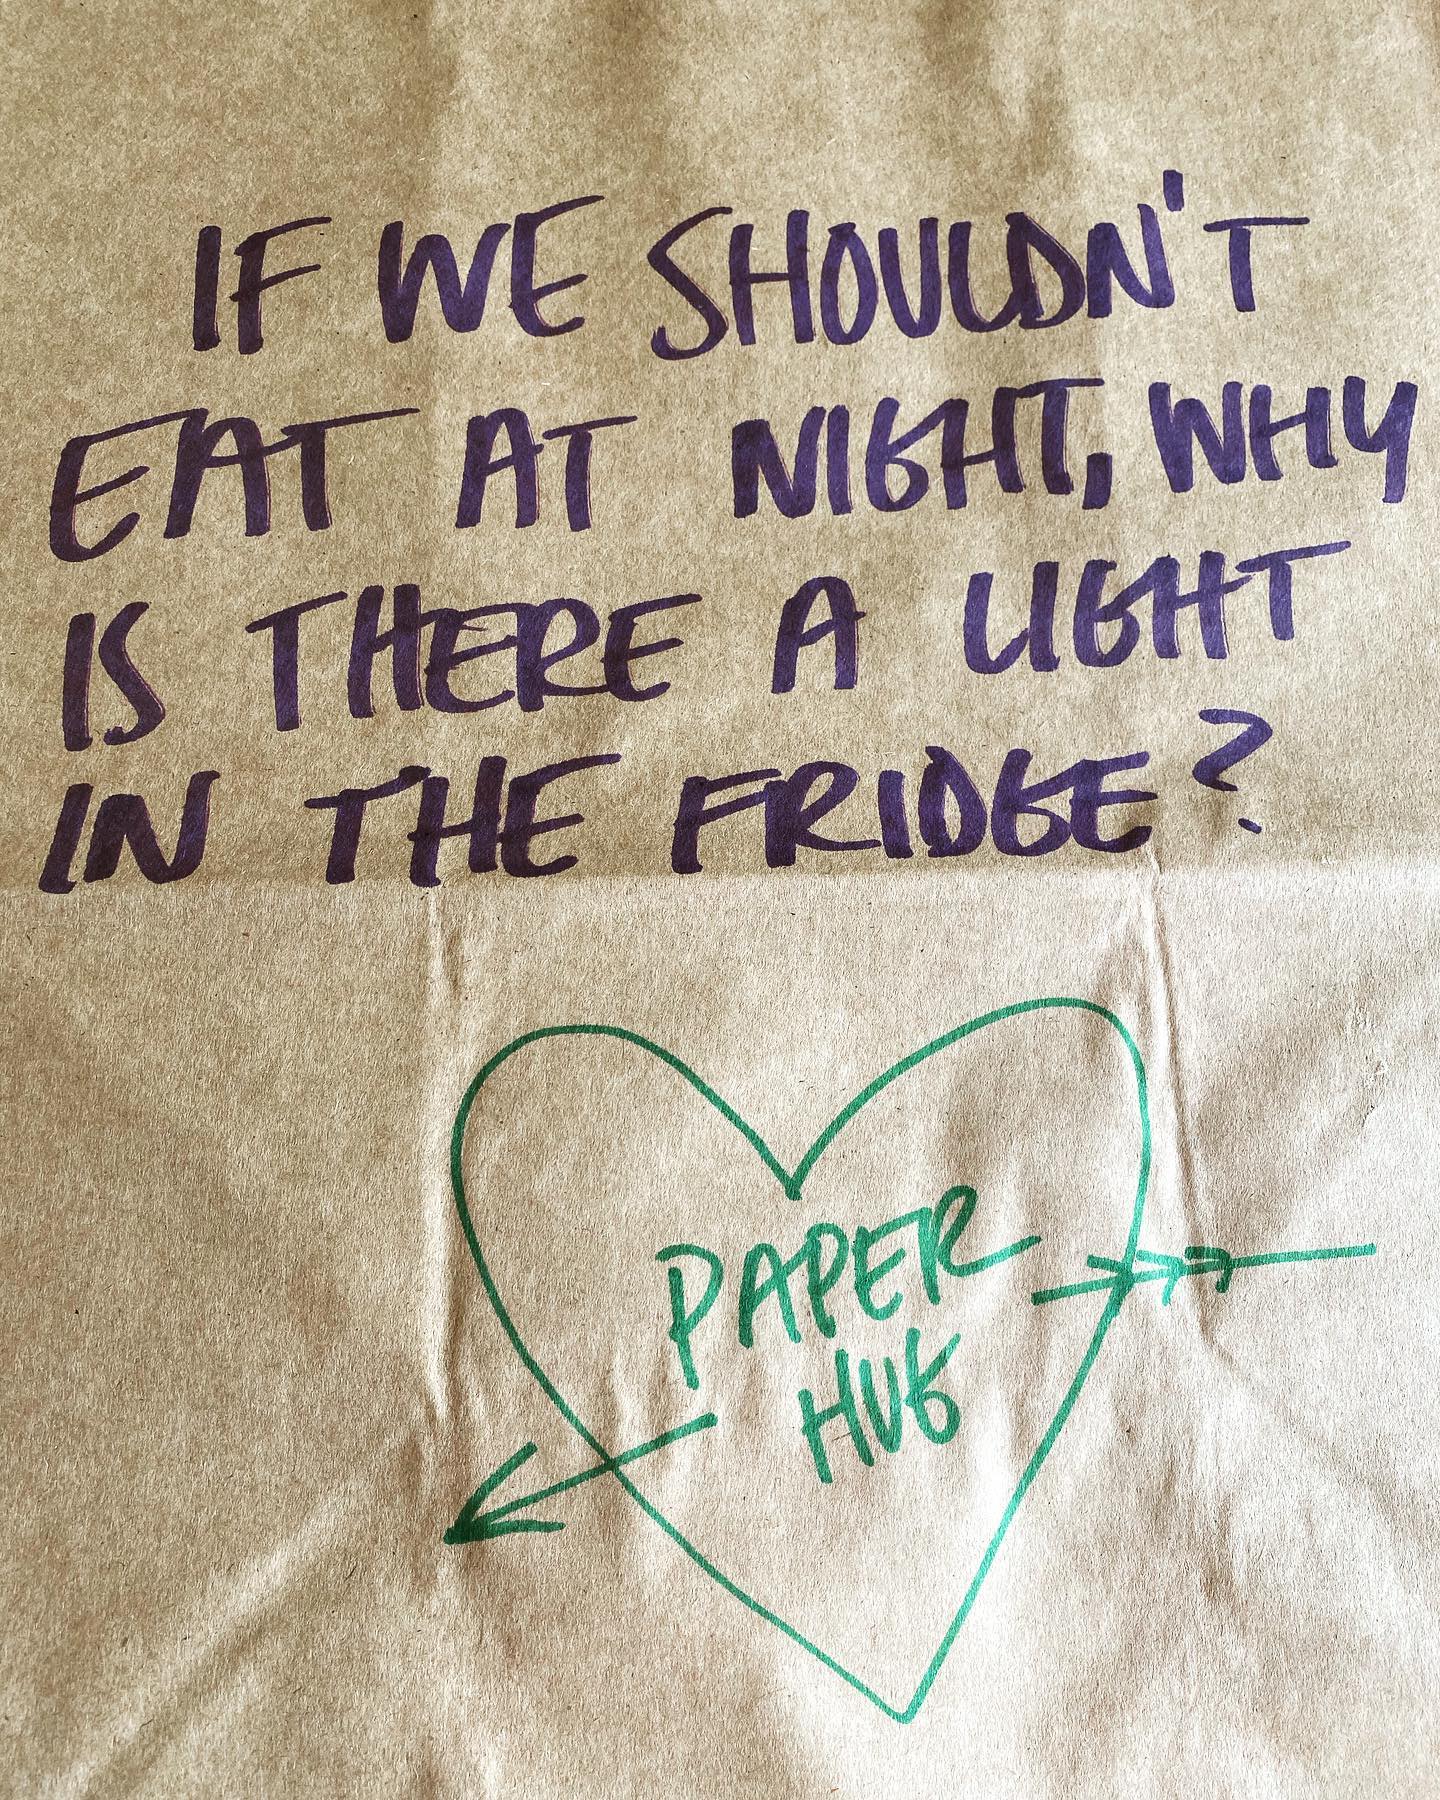 IF WE SHOULDN'T
EAT AT NIGHT, WHY
IS THERE A LIGHT
IN THE FRIDGE?
PAPER
HUG